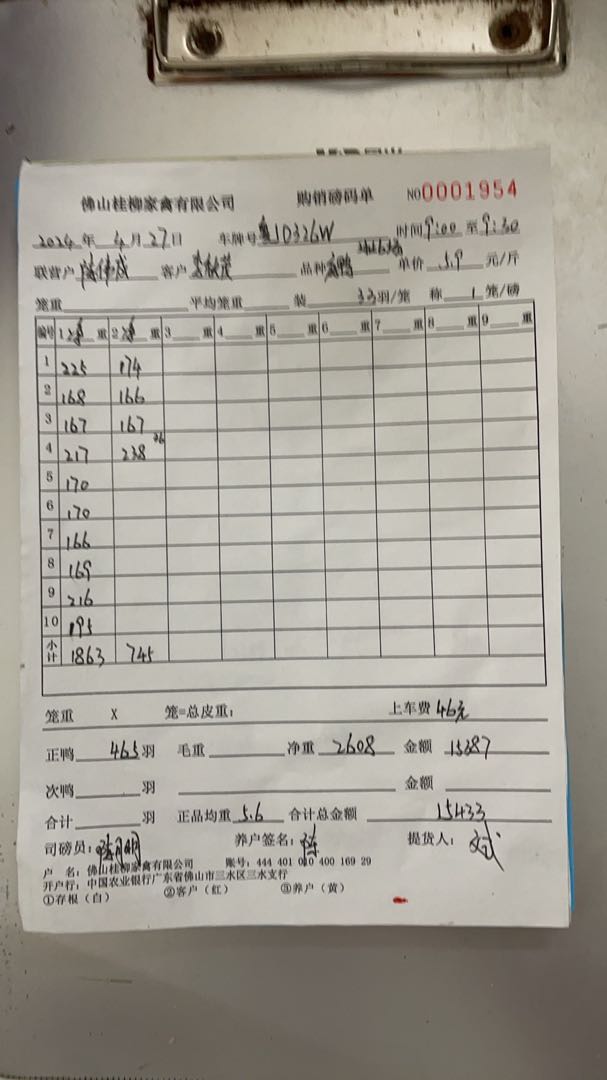 佛山桂柳家禽有限公司 购销磅码单 NO0001954
2024年 4月27日 车牌号 粤J0326W 时间9:00至9:30
联营户 客户 品种 单价 5.9 元/斤
笼重 平均笼重 装 33羽/笼 称 1 笼/磅
编号 1 重 2 重 3 重 4 重 5 重 6 重 7 重 8 重 9 重
1 225 174
2 168 166
3 167 167
4 217 238 36
5 170
6 170
7 166
8 169
9 216
10 195
小计 1863 745
笼重 X 笼=总皮重: 上车费 46元
正鸭 465羽 毛重 净重 2608 金额 15387
次鸭 羽 金额
合计 羽 正品均重 5.6 合计总金额 15433
司磅员: 养户签名: 陈 提货人:
户 名: 佛山桂柳家禽有限公司 账号: 444 401 010 400 169 29
开户行: 中国农业银行广东省佛山市三水区三水支行
①存根(白) ②客户(红) ③养户(黄)